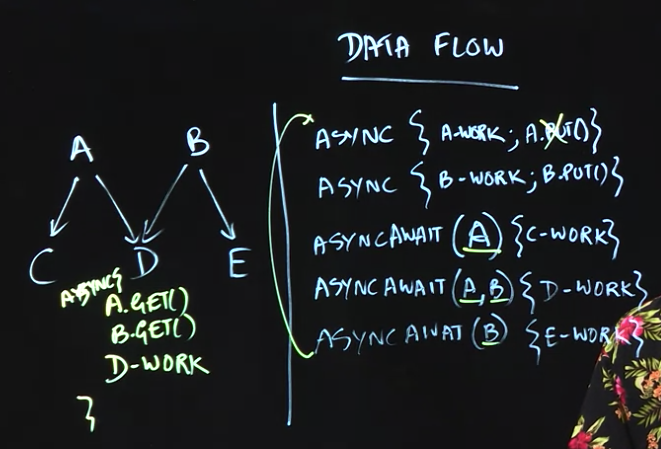 DATA FLOW
A B
C D E
ASYNC{
A.GET()
B.GET()
D-WORK
}
ASYNC { A-WORK; A.PUT()}
ASYNC { B-WORK; B.PUT()}
ASYNCAWAIT (A) {C-WORK}
ASYNCAWAIT (A,B) {D-WORK}
ASYNCAWAT (B) {E-WORK}